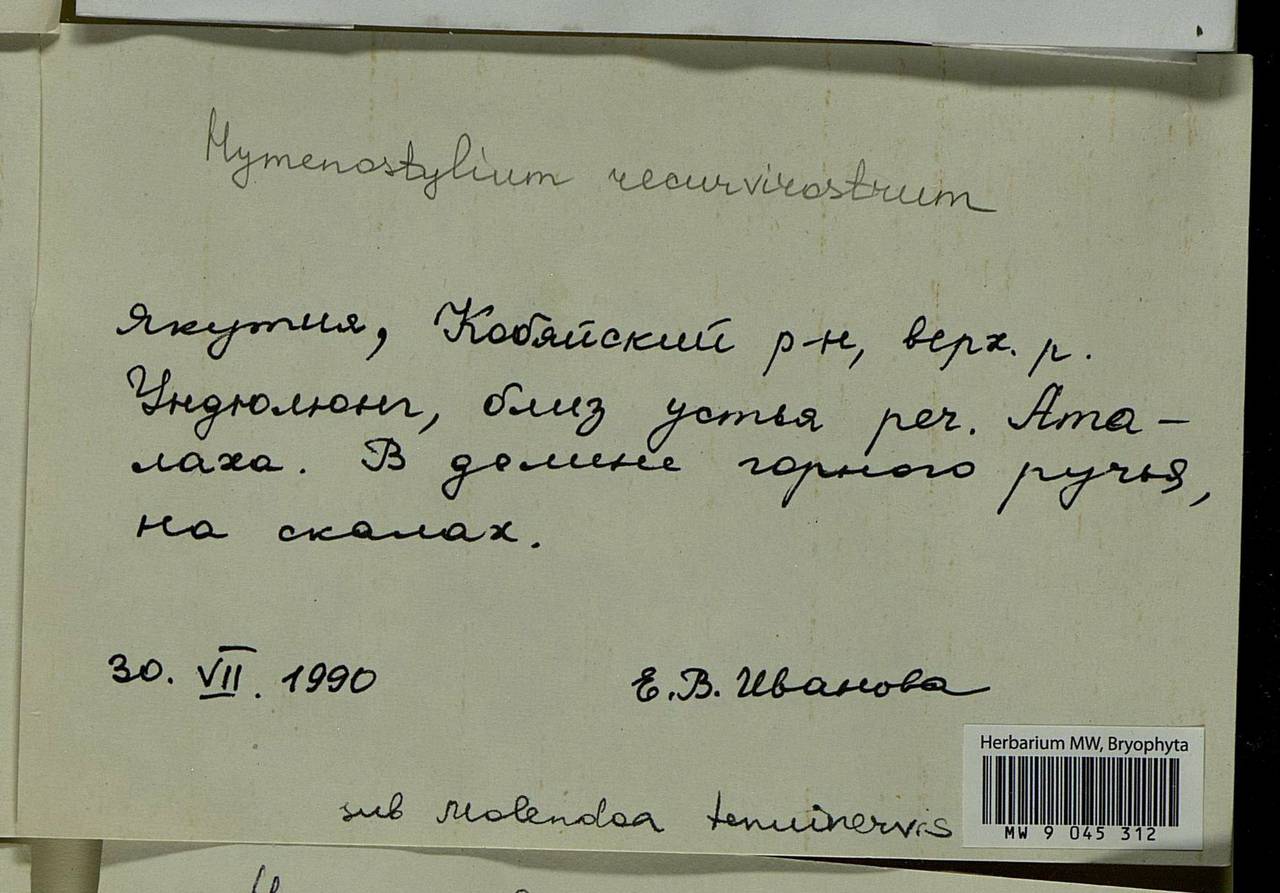 Hymenostylium recurvirostrum
Якутия, Кобяйский р-н, верх. р.
Ундюлюнг, близ устья реч. Ата-
лаха. В долине горного ручья,
на скалах.
30. VII. 1990 Е.В. Иванова
Herbarium MW, Bryophyta
MW 9 045 312
sub Molendoa tenuinervis